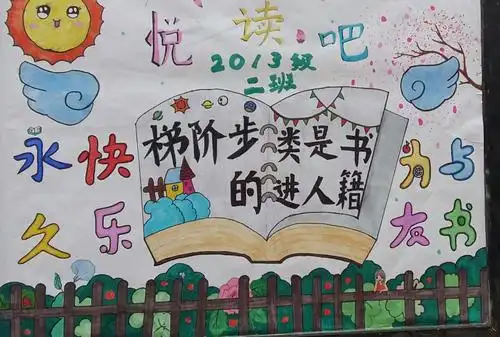 悦读吧
2013级
二班
书籍
是人
类进
步的
阶
梯
与书
为友
快乐
永久